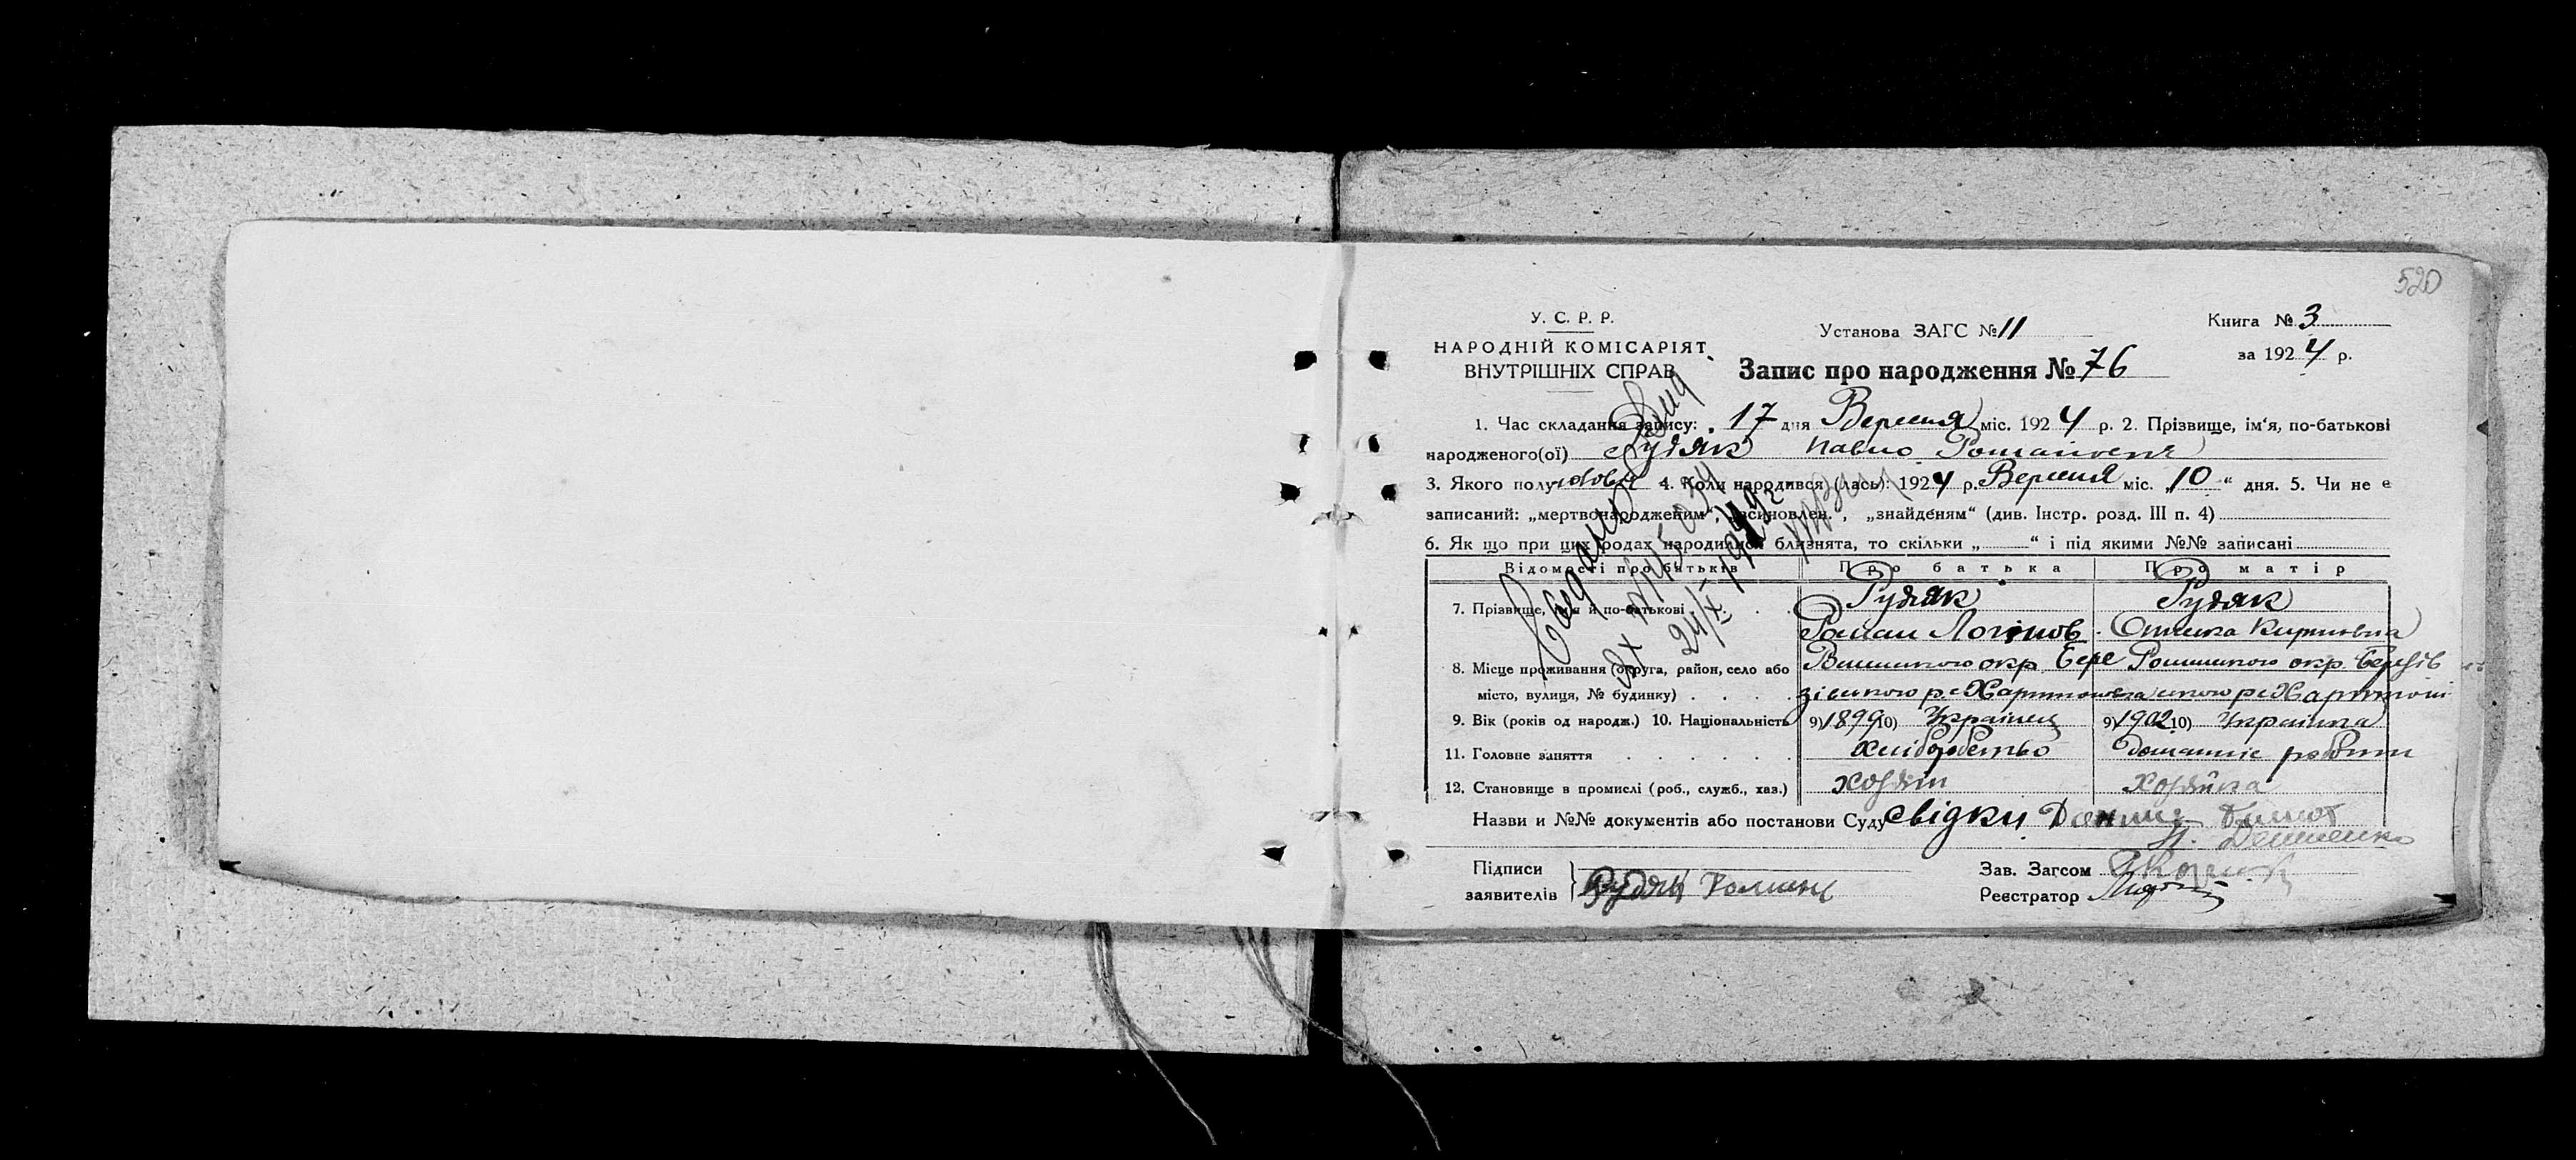 520
У. С. Р. Р.
НАРОДНІЙ КОМІСАРІЯТ
ВНУТРІШНІХ СПРАВ
Установа ЗАГС № 11
Книга № 3
за 1924 р.
Запис про народження № 76
1. Час складання запису: 17 дня Вересня міс. 1924 р. 2. Прізвище, ім‘я, по-батькові
народженого(ої) Рудяк Павло Романович
3. Якого полу 4. Коли народився (лась): 1924 р. Вересня міс. „10“ дня. 5. Чи не є
записаний: „мертвонародженим“, „всиновлен.“, „знайденям“ (див. Інстр. розд. III п. 4)
6. Як що при цих родах народилися близнята, то скільки „ “ і під якими №№ записані
Відомості про батьків Про батька Про матір
7. Прізвище, ім‘я й по-батькові Рудяк Рудяк
Роман Логінов.
8. Місце проживання (округа, район, село або
місто, вулиця, № будинку)
9. Вік (років од народж.) 10. Національність 9) 1899 10) Українец 9) 1902 10) Українка
11. Головне заняття хліборобство домашніе работи
12. Становище в промислі (роб., служб., хаз.) хозяін хозяйка
Назви и №№ документів або постанови Суду свідки
Підписи
заявителів Рудяк Роман
Зав. Загсом
Реєстратор
24/X 1942